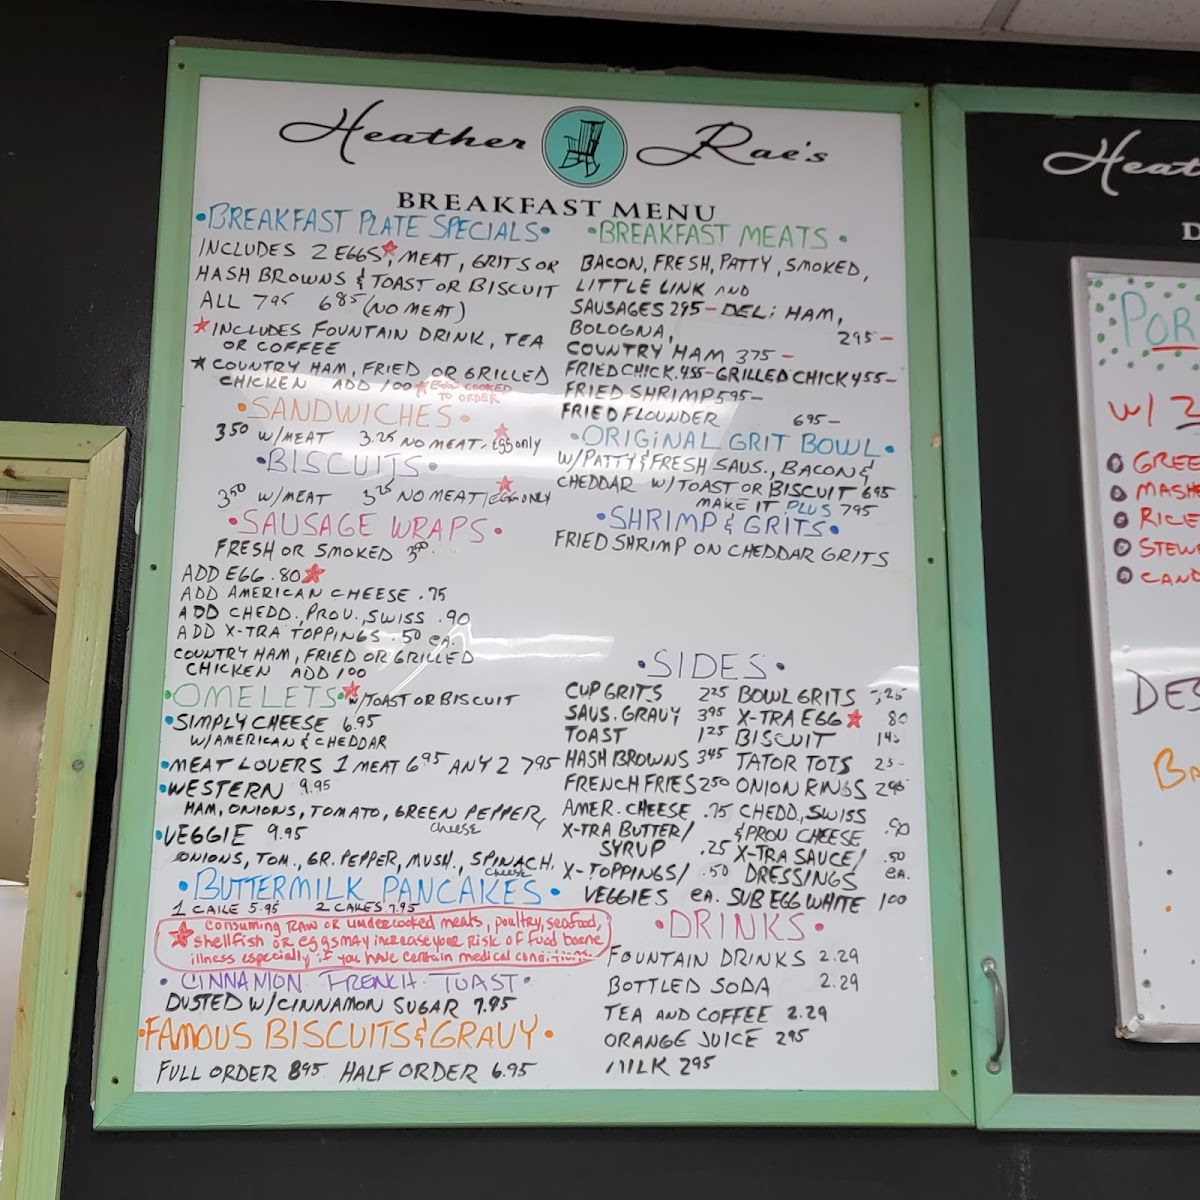 Heather Rae's
BREAKFAST MENU
•BREAKFAST PLATE SPECIALS•
INCLUDES 2 EGGS, MEAT, GRITS OR
HASH BROWNS & TOAST OR BISCUIT
ALL 7.95 6.85 (NO MEAT)
★INCLUDES FOUNTAIN DRINK, TEA
OR COFFEE
★COUNTRY HAM, FRIED OR GRILLED
CHICKEN ADD 1.00 ★EGGS COOKED
TO ORDER
•SANDWICHES•
3.50 W/MEAT 3.25 NO MEAT - Egg only
•BISCUITS•
3.50 W/MEAT 3.25 NO MEAT/EGG ONLY
•SAUSAGE WRAPS•
FRESH OR SMOKED
ADD EGG .80★
ADD AMERICAN CHEESE .75
ADD CHEDD., PROV., SWISS .90
ADD X-TRA TOPPINGS .50 ea.
COUNTRY HAM, FRIED OR GRILLED
CHICKEN ADD 1.00
•OMELETS★ W/TOAST OR BISCUIT
•SIMPLY CHEESE 6.95
W/AMERICAN & CHEDDAR
•MEAT LOVERS 1 MEAT 6.95 ANY 2 7.95
•WESTERN 9.95
HAM, ONIONS, TOMATO, GREEN PEPPER,
cheese
•VEGGIE 9.95
ONIONS, TOM., GR. PEPPER, MUSH., SPINACH.
cheese
•BUTTERMILK PANCAKES•
1 CAKE 5.95 2 CAKES 7.95
★ Consuming RAW OR undercooked meats, poultry, seafood,
shellfish or eggs may increase your risk of food borne
illness especially if you have certain medical conditions
•CINNAMON FRENCH TOAST•
DUSTED W/CINNAMON SUGAR 7.95
•FAMOUS BISCUITS & GRAVY•
FULL ORDER 8.95 HALF ORDER 6.95
•BREAKFAST MEATS•
BACON, FRESH, PATTY, SMOKED,
LITTLE LINK AND
SAUSAGES 2.95 - DELI HAM,
BOLOGNA, 2.95 -
COUNTRY HAM 3.75 -
FRIED CHICK. 4.55 - GRILLED CHICK 4.55 -
FRIED SHRIMP 5.95 -
FRIED FLOUNDER 6.95 -
•ORIGINAL GRIT BOWL•
W/PATTY & FRESH SAUS., BACON &
CHEDDAR W/TOAST OR BISCUIT 6.95
MAKE IT PLUS 7.95
•SHRIMP & GRITS•
FRIED SHRIMP ON CHEDDAR GRITS
•SIDES•
CUP GRITS 2.25 BOWL GRITS
SAUS. GRAVY 3.95 X-TRA EGG★ 80
TOAST 1.25 BISCUIT
HASH BROWNS 3.45 TATOR TOTS
FRENCH FRIES 2.50 ONION RINGS 2.95
AMER. CHEESE .75 CHEDD, SWISS
& PROV CHEESE .90
X-TRA BUTTER/
SYRUP .25 X-TRA SAUCE/ .50
X-TOPPINGS/ .50 DRESSINGS ea.
VEGGIES ea. SUB EGG WHITE 1.00
•DRINKS•
FOUNTAIN DRINKS 2.29
BOTTLED SODA 2.29
TEA AND COFFEE 2.29
ORANGE JUICE 2.95
MILK 2.95
Heat
D
POR
W/ 2
GREE
MASH
RICE
STEW
CAND
DES
BA